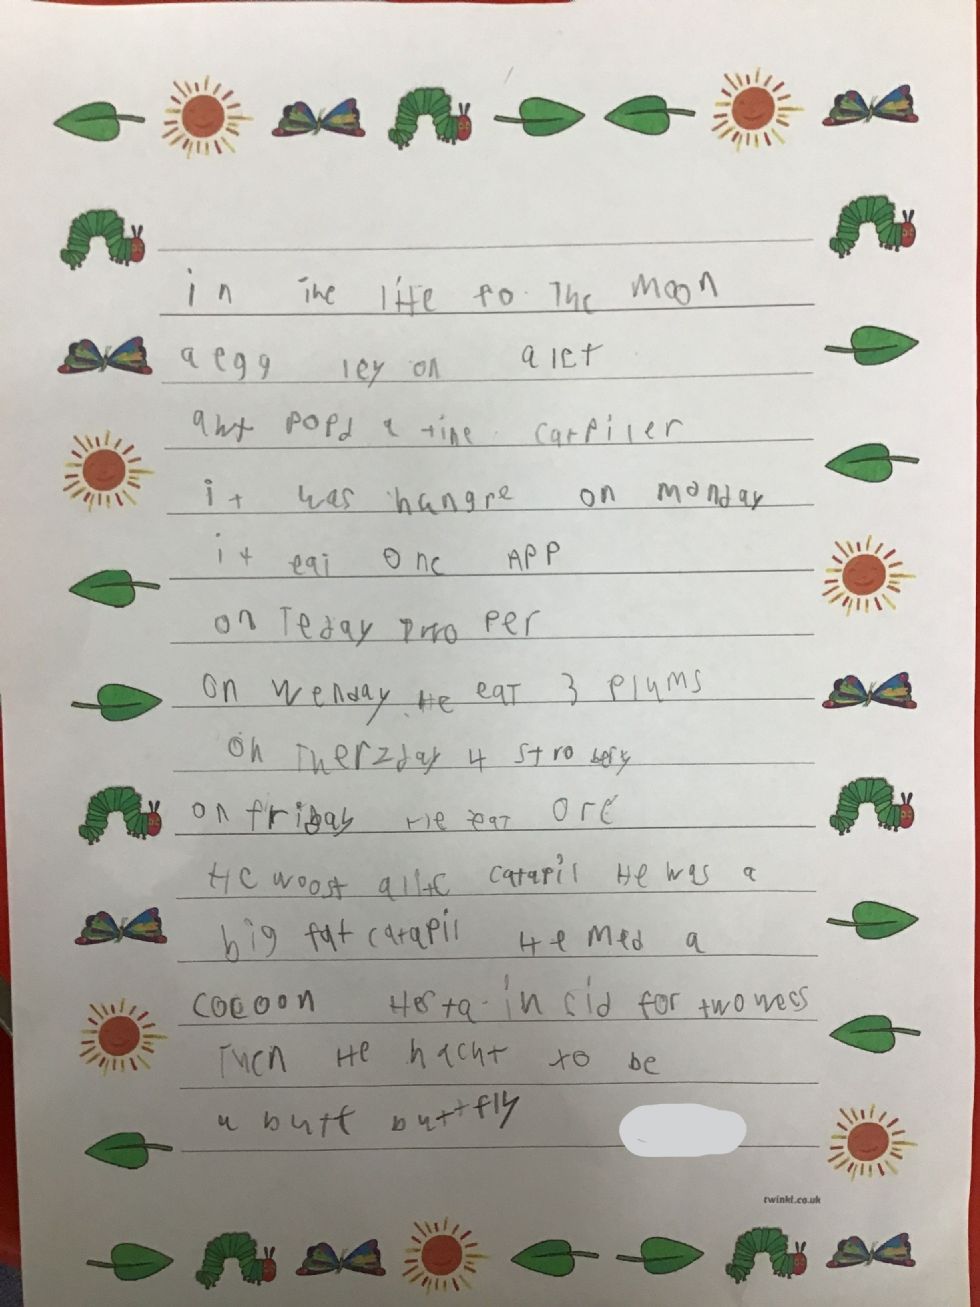 in the life to the moon
a egg ley on a lef
awt popd a tine carpiler
it was hangre on monday
it eat one APP
on Teday Two per
on wenday He eat 3 Plums
on Therzday 4 strobery
on friday He eat ore
He woost a litte catapil He was a
big fat catapil He med a
cocoon He sta in sid for two wecs
Then He hacht to be
a butt buttfly
twinkl.co.uk